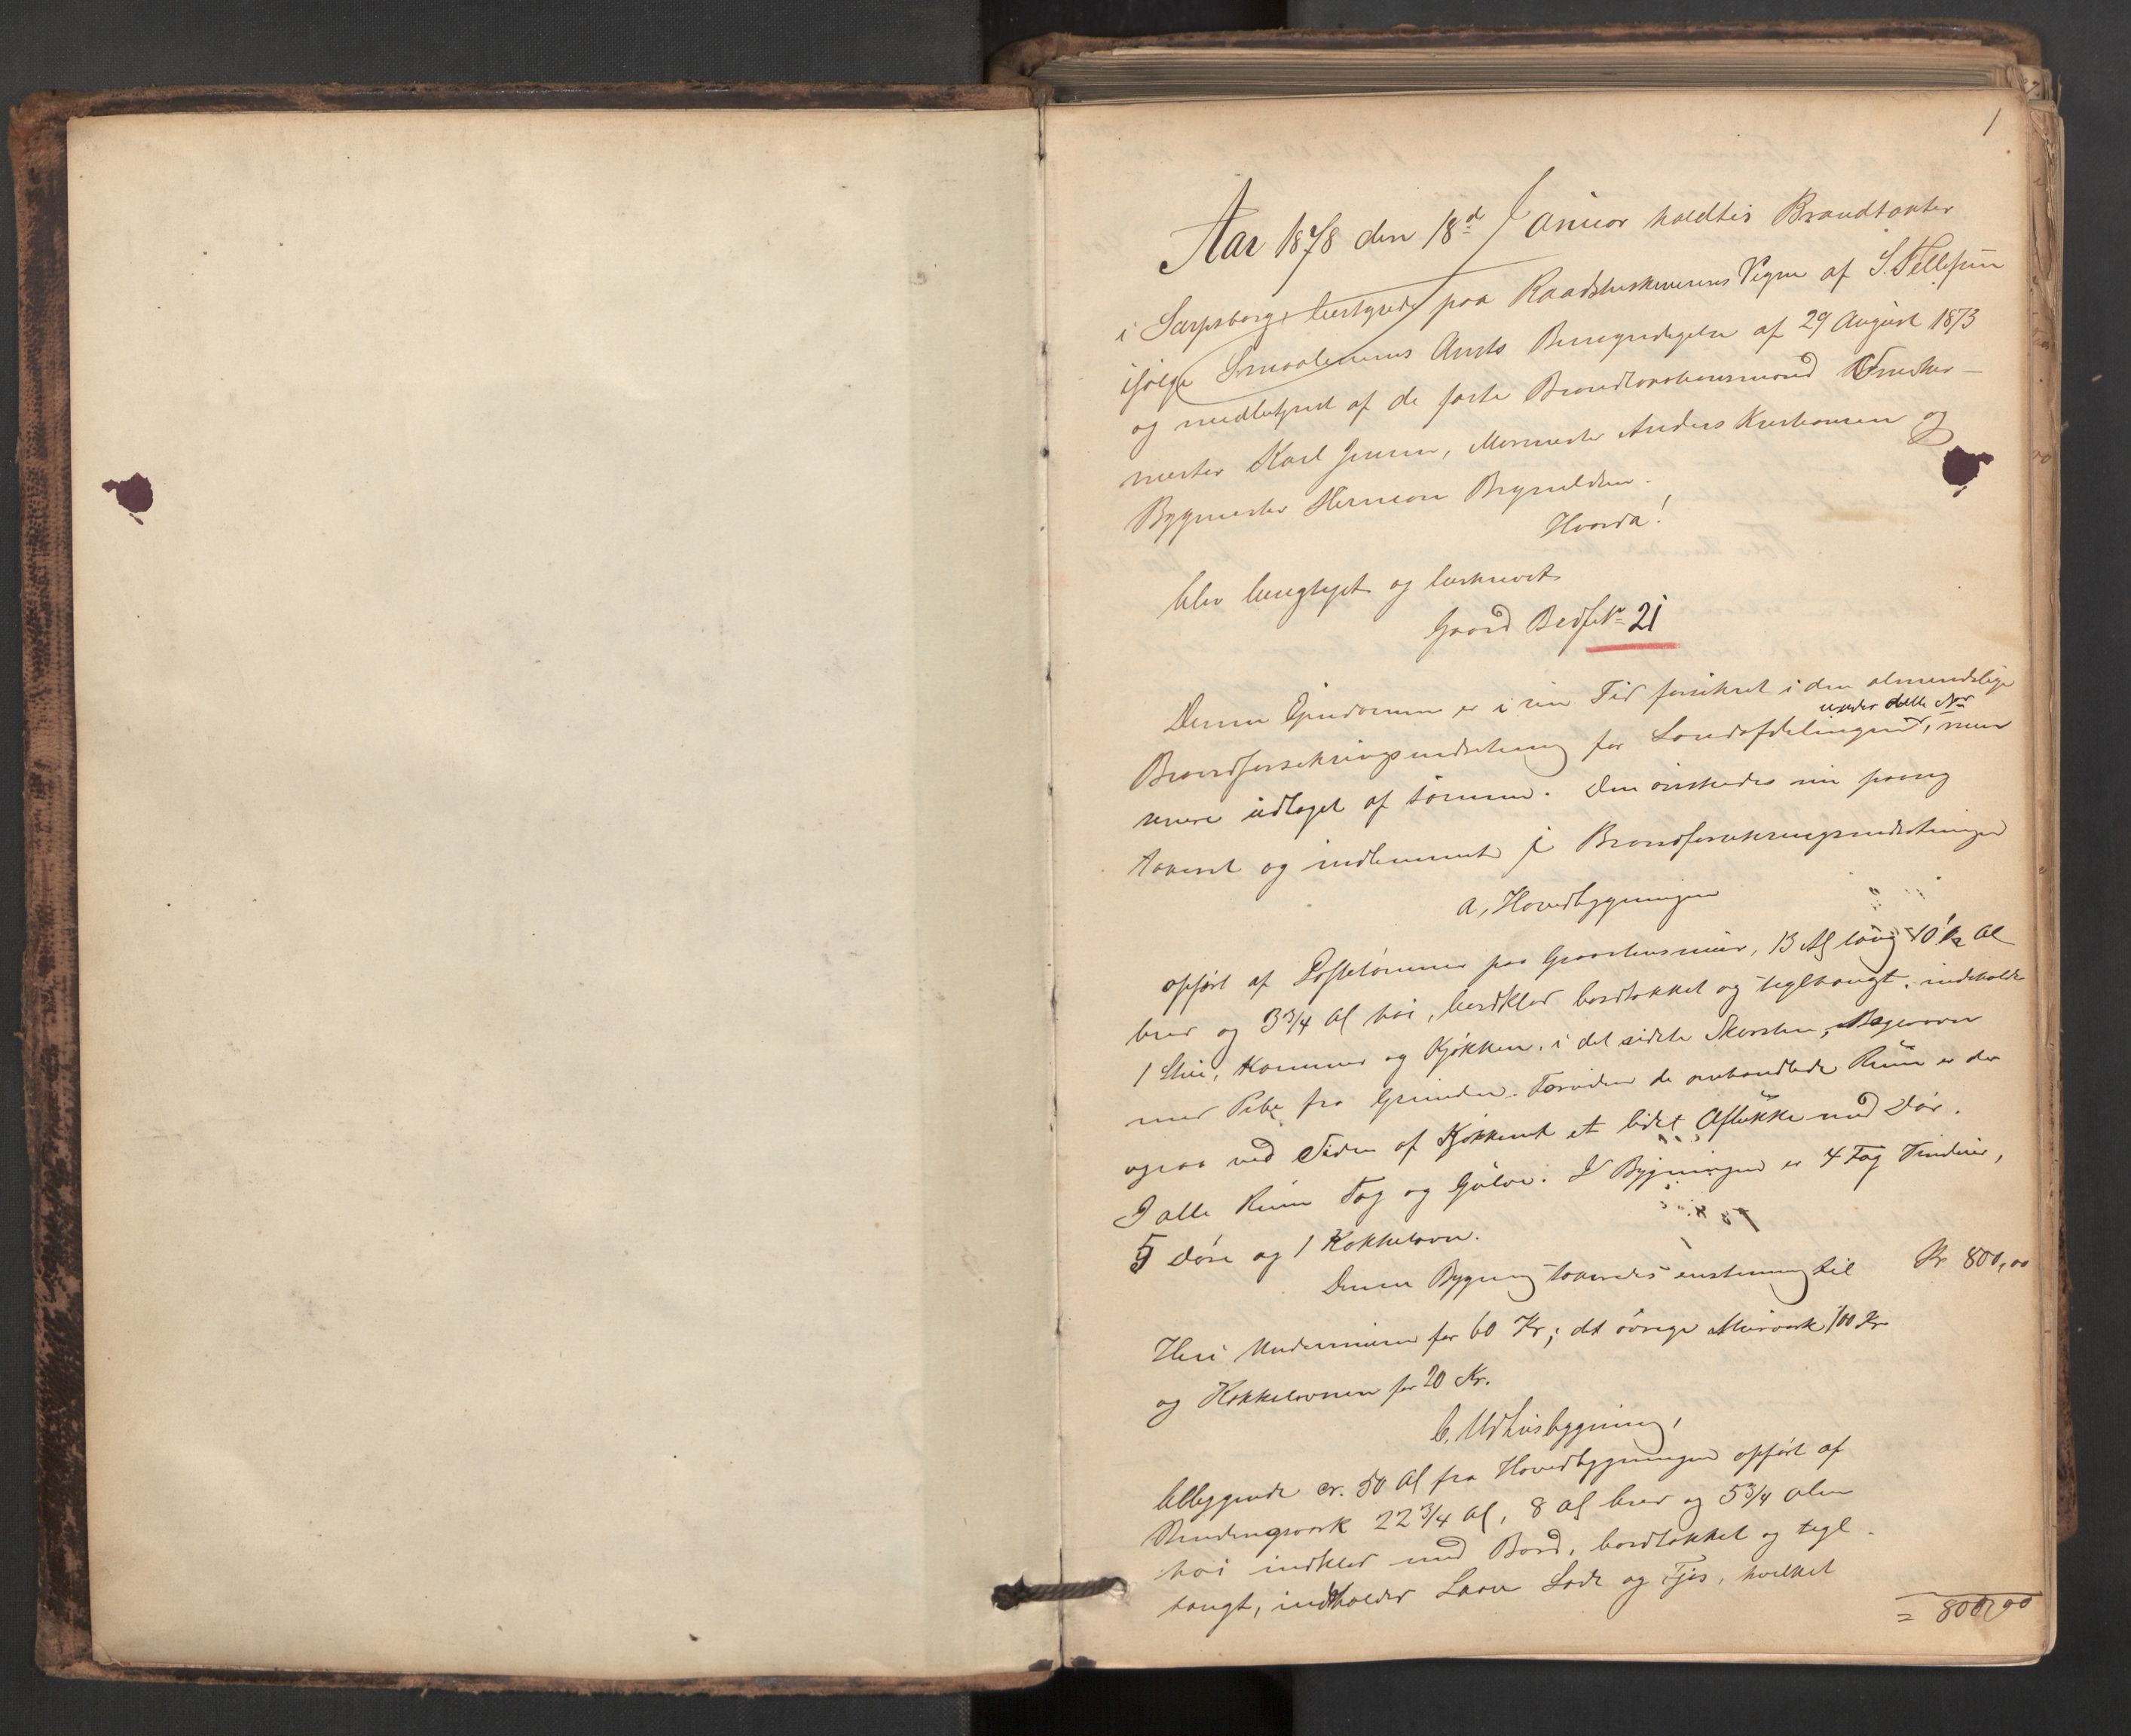 1
Aar 1878 den 18d Januar holdtes Brandtaxter
i Sarpsborg, bestyrede paa Raadstueskriverens Vegne af S. Tellefsen
ifølge Smaalenenes Amts Bemyndigelse af 29 August 1873
og meddeltaget af de faste Brandtaxationsmænd Snedker-
mester Karl Jensen, Murmester Anders Kristiansen og
Bygmester Herman Brynildsen.
Hvorda!
blev besigtiget og beskrevet
Gaard Bedf. No 21
Denne Ejendomm er i sin Tid forsikret i den almindelige
under dette Nr
Brandforsikringsindretning for Landafdelingen, men
senere udtaget af samme. Den ønskedes nu paany
taxeret og indlemmet i Brandforsikringsindretningen
a, Hovedbygningen
opført af Loftetømmer paa Graastensmur, 13 Al lang 10 1/2 Al
bred og 3 3/4 Al høi, bordklæd bordtækket og teglhængt, indeholder
1 Stue, Kammer og Kjøkken, i det sidste Skorsten, Bagerovn
med Pibe fra Grunden. Foruden de omhandlede Rum er der
ogsaa ved Siden af Kjøkkenet et lidet Aflukke med Dør.
I alle Rum Tag og Gulve. I Bygningen er 4 Fag Vinduer,
5 Døre og 1 Kakkelovn.
Denne Bygning taxeredes enstemmig til Kr 800,00
Heri Undermuren for 60 Kr; det øvrige Murværk 100 Kr
og Kakkelovnen for 20 Kr.
b, Udhusbygning,
beliggende cr. 50 Al fra Hovedbygningen opført af
Bindingsværk 22 3/4 Al, 8 Al bred og 5 3/4 Alen
høi indklæd med Bord, bordtækket og tegl-
hængt, indeholder Laave Lade og Fjøs, hvilket
= 800,00